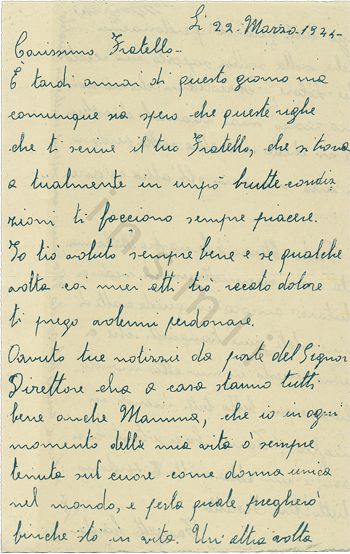 Li 22-Marzo-1945-
Carissimo Fratello-
È tardi ormai di questo giorno ma
comunque sia spero che queste righe
che ti scrive il tuo Fratello, che si trova
a tualmente in unpò brutte condi
zioni ti facciono sempre piacere.
Io tiò voluto sempre bene e se qualche
volta coi miei atti tiò recato dolore
ti prego volermi perdonare.
Oavuto tue notizzie da parte del Signor
Direttore cha a casa stanno tutti
bene anche Mamma, che io in ogni
momento della mia vita ò sempre
tenuta sul cuore come donna unica
nel mondo, e perla quale pregherò
finche sto in vita. Un'altra volta